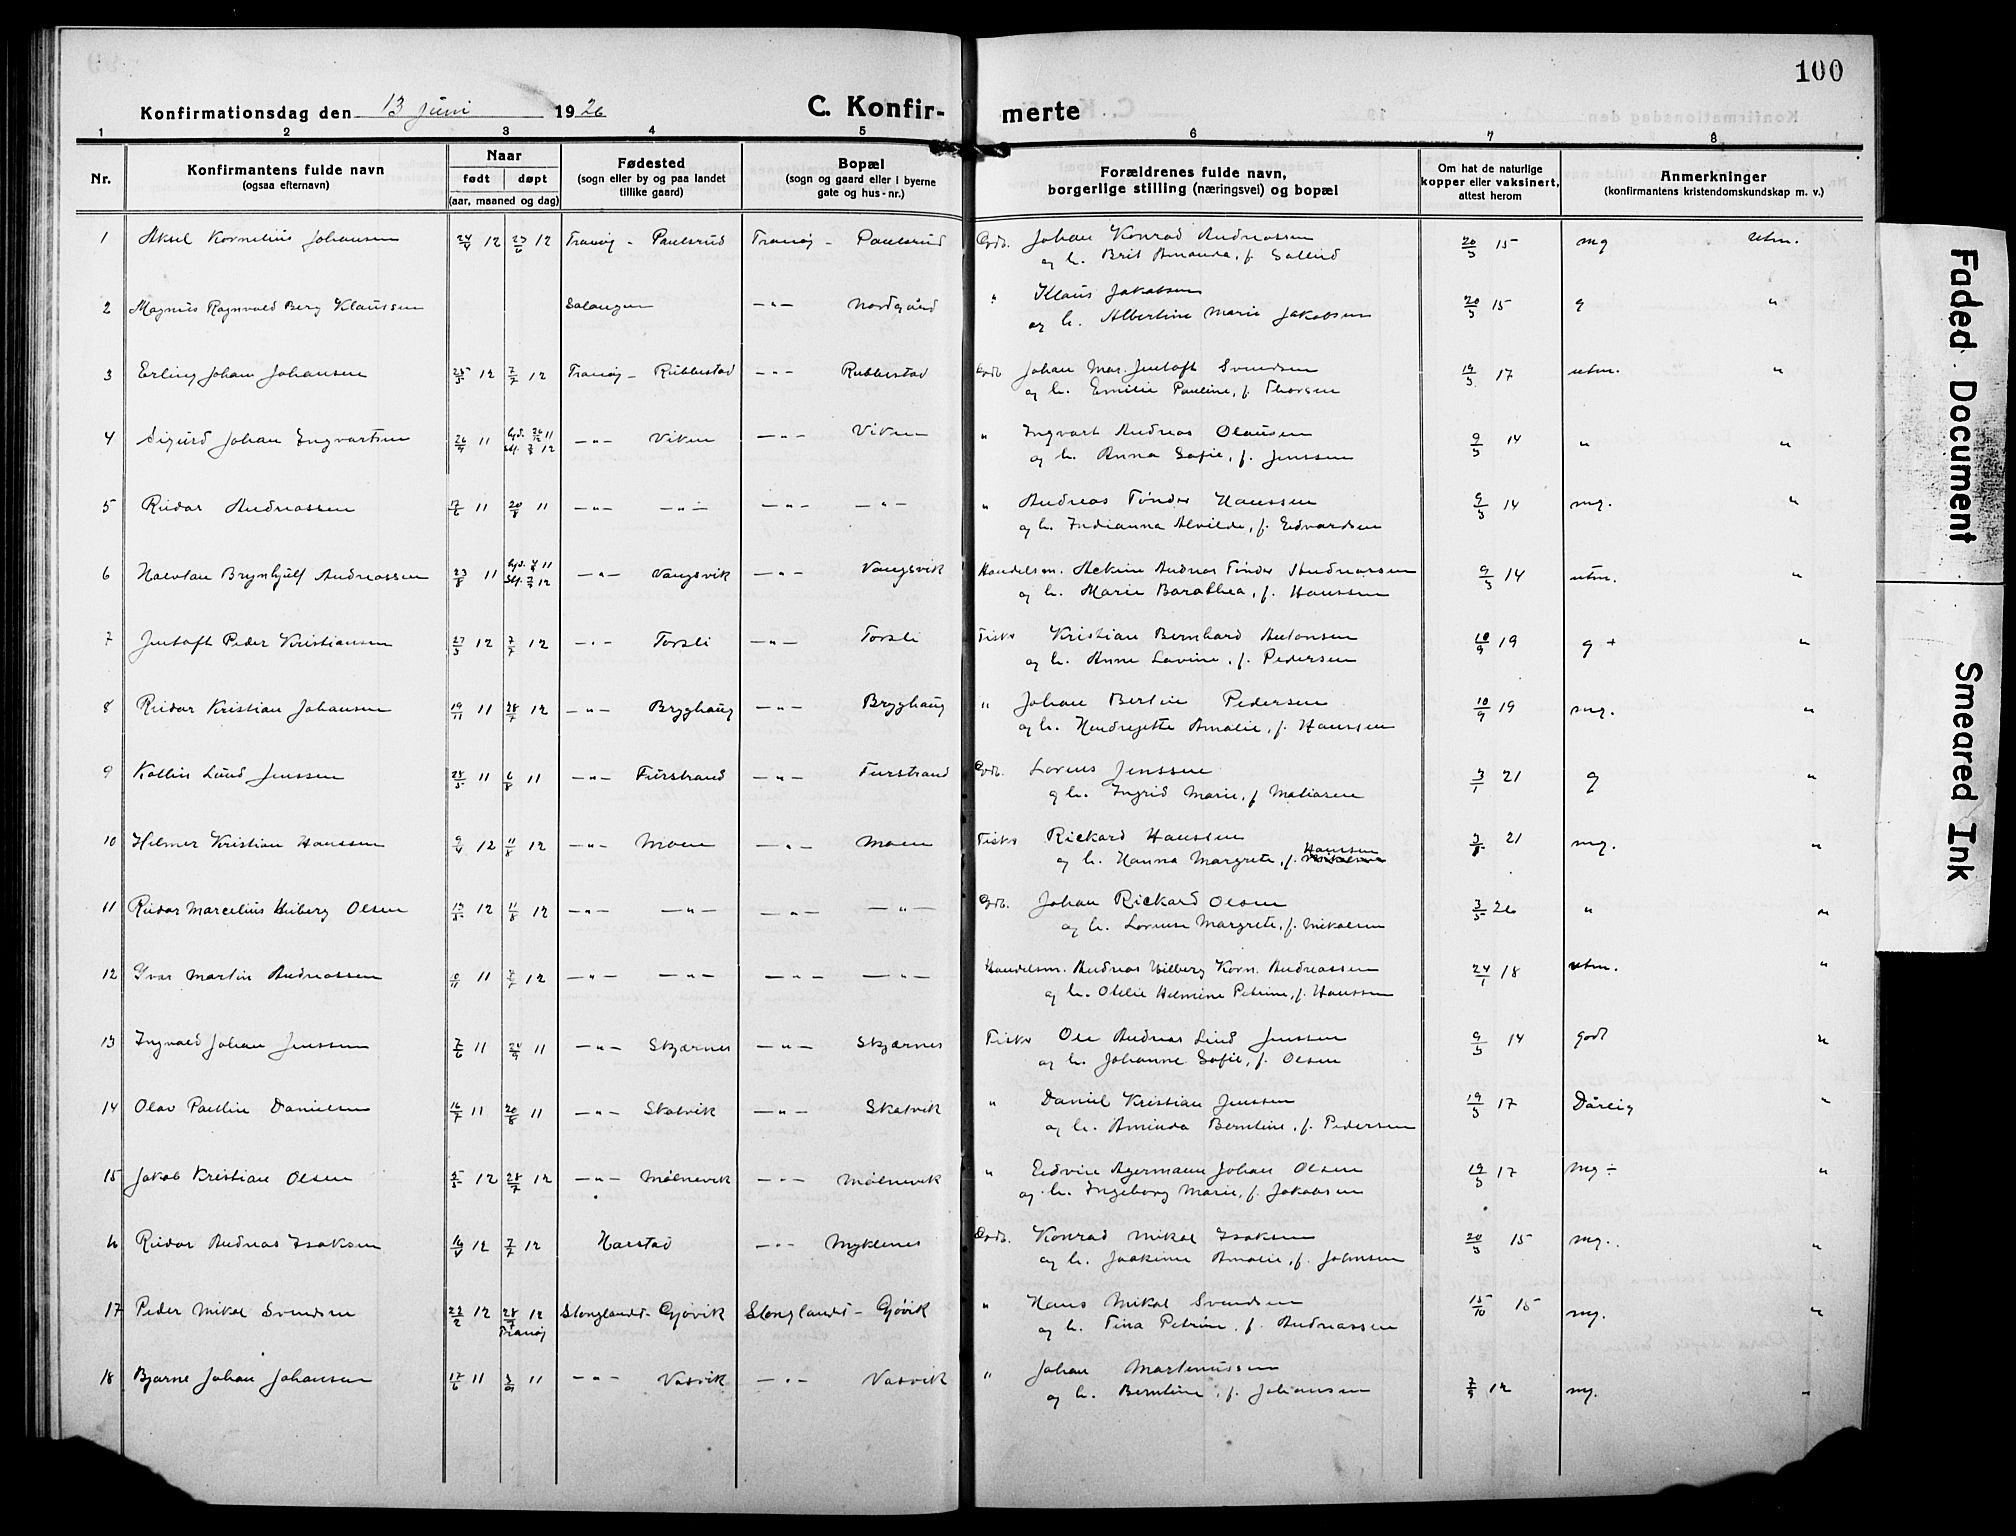 100
Konfirmationsdag den 13 Juni 1926
C. Konfir- merte
1 2 3 4 5 6 7 8
Nr.
Konfirmantens fulde navn
(ogsaa efternavn)
Naar
født døpt
(aar, maaned og dag)
Fødested
(sogn eller by og paa landet
tillike gaard)
Bopæl
(sogn og gaard eller i byerne
gate og hus-nr.)
Forældrenes fulde navn,
borgerlige stilling (næringsvei) og bopæl
Om hat de naturlige
kopper eller vaksinert,
attest herom
Anmerkninger
(konfirmantens kristendomskundskap m. v.)
1 Aksel Kornelius Johansen 24/4 12 23/6 12 Tranøy - Paulsrud Tranøy - Paulsrud Gdb. Johan Konrad Andreassen 20/5 15 mg utm.
og h. Brit Amanda, f.
2 Magnus Ragnvald Berg Klaussen Salangen -"- Nordgård " Klaus Jakobsen 20/5 15 g "
og h. Albertine Marie Jakobsen
3 Erling Johan Johansen 25/5 12 7/7 12 Tranøy - Rubbestad -"- Rubbestad Gdb. Johan Mar. Jentoft Svendsen 19/5 17 utm. "
og h. Emilie Pauline, f. Thorsen
4 Sigurd Johan Ingvartsen 26/9 11 11 12 -"- Viken -"- Viken " Ingvart Andreas Olausen 9/5 14 " "
og h. Anna Sofie, f. Jenssen
5 Reidar Andreassen 17/6 11 20/8 11 -"- -"- -"- -"- " Andreas Tønder Hanssen 9/5 14 mg. "
og h. Indianna Alvilde, f. Edvardsen
6 Halvdan Brynhjulf Andreassen 23/8 11 11 12 -"- Vangsvik -"- Vangsvik Handelsm. Andreas Tønder Andreassen 9/5 14 utm. "
og h. Marie Barathea, f. Hanssen
7 Jentoft Peder Kristiansen 27/5 12 7/7 12 -"- Torsli -"- Torsli Fisker Kristian Bernhard Antonsen 10/9 19 g + "
og h. Anne Lavine, f. Pedersen
8 Reidar Kristian Johansen 19/11 11 28/7 12 -"- Brygghaug -"- Brygghaug " Johan Bertin Pedersen 10/9 19 mg. "
og h. Hendrejette Amalie, f. Hanssen
9 Kollin Lund Jenssen 24/5 11 6/8 11 -"- Furstrand -"- Furstrand Gdb. Lorens Jenssen 3/1 21 g "
og h. Ingrid Marie, f.
10 Helmer Kristian Hanssen 9/4 12 11/8 12 -"- Moen -"- Moen Fisker Rickard Hanssen 21 mg. "
og h. Hanna Margrete, f. Hanssen
11 Reidar Marcelius Heiberg Olsen 12 11/8 12 -"- -"- -"- -"- Gdb. Johan Rickard Olsen 3/5 26 " "
og h. Lovise Margrete, f. Mikalsen
12 Ivar Martin Andreassen 11 7/7 12 -"- -"- -"- -"- Handelsm. Andreas Wilberg Korn. Andreassen 24/1 18 utm. "
og h. Otelie Helmine Petrine, f. Hanssen
13 Ingvald Johan Jenssen 7/6 11 24/9 11 -"- Skjærnes -"- Skjærnes Fisker Ole Andreas Lind Jenssen 9/5 14 godt "
og h. Johanne Sofie, f. Olsen
14 Olav Paulin Danielsen 16/7 11 20/8 11 -"- Skatvik -"- Skatvik " Daniel Kristian Jenssen 19/5 17 Dårlig "
og h. Aminda Berntine, f. Pedersen
15 Jakob Kristian Olsen 12 28/7 12 -"- Mølnevik -"- Mølnevik " Edvin Agermann Johan Olsen 19/5 17 mg ÷ "
og h. Ingeborg Marie, f. Jakobsen
16 Reidar Andreas Isaksen 16/4 12 7/7 12 Harstad -"- Myklenes Gdb. Konrad Mikal Isaksen 20/5 15 mg. "
og h. Joakime Amalie, f. Johnsen
17 Peder Mikal Svendsen 22/2 12 28/7 12 Stonglandet - Gjøvik Stonglandet - Gjøvik " Hans Mikal Svendsen 15/10 15 mg. "
Tranøy og h. Tina Petrine, f. Andreassen
18 Bjarne Johan Johansen 17/6 11 11 -"- Vasvik -"- Vasvik " Johan Martinussen 7/9 12 mg. "
og h. Berntine, f. Johansen
Faded Document
Smeared Ink